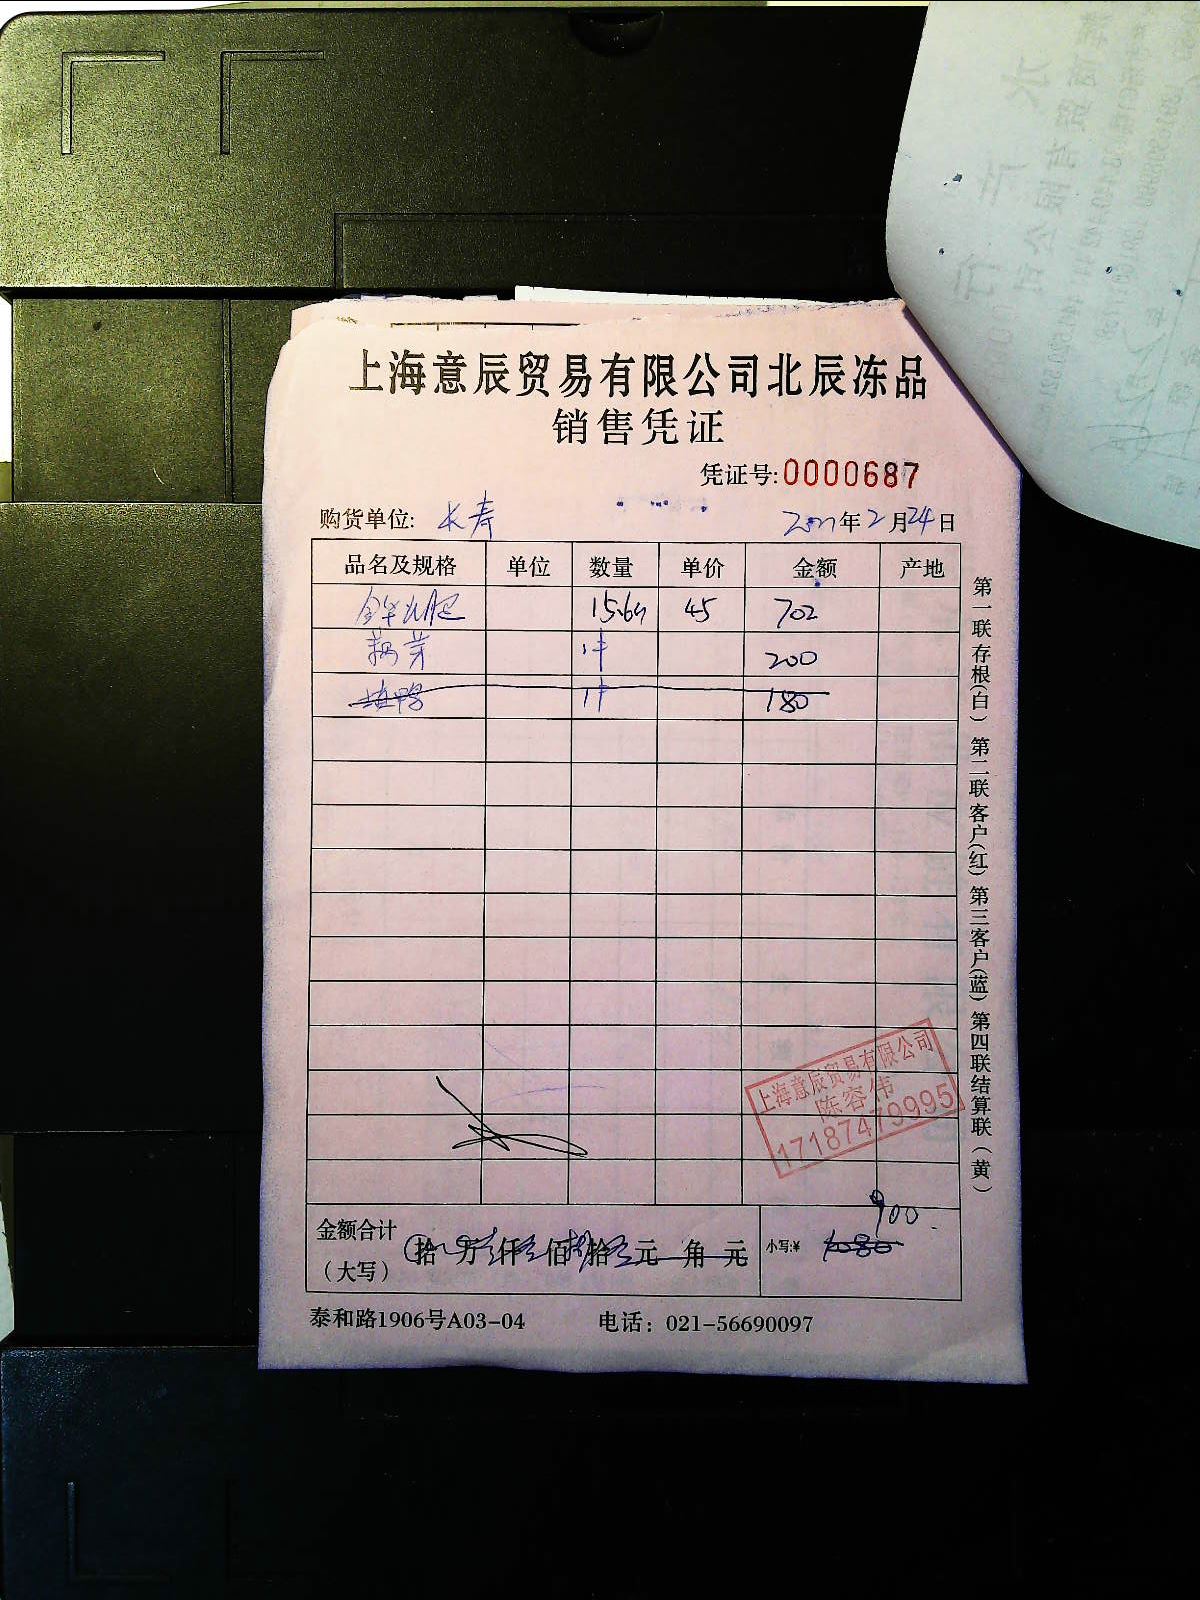 上海意辰贸易有限公司北辰冻品
销售凭证
凭证号:0000687
购货单位: 长寿 年2月24日
品名及规格 单位 数量 单价 金额 产地
15.6 45 702
1件 200
1件 180
上海意辰贸易有限公司
陈容伟
17187479995
900
金额合计
(大写) 拾 万 仟 佰 拾 元 角 元 小写:¥ 1080
泰和路1906号A03-04 电话: 021-56690097
第一联存根(白) 第二联客户(红) 第三客户(蓝) 第四联结算联(黄)